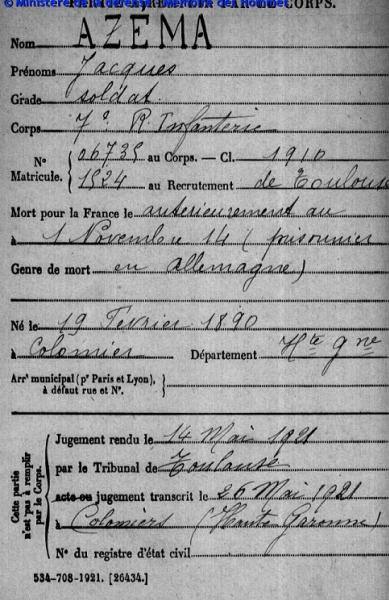 © Ministère de la défense - Mémoire des Hommes
PARTIE À REMPLIR PAR LE CORPS.
Nom AZEMA
Prénoms Jacques
Grade soldat
Corps 7e R. Infanterie
N° Matricule. { 06735 au Corps. — Cl. 1910
1524 au Recrutement de Toulouse
Mort pour la France le antérieurement au
à 1 Novembre 14 (prisonnier
Genre de mort en allemagne)
Né le 19 Février 1890
à Colomier Département Hte Gne
Arr' municipal (pr Paris et Lyon), à défaut rue et N°.
Cette partie n'est pas à remplir par le Corps.
Jugement rendu le 14 Mai 1921
par le Tribunal de Toulouse
acte ou jugement transcrit le 26 Mai 1921
à Colomiers (Haute Garonne)
N° du registre d'état civil
534-708-1921. [26434.]